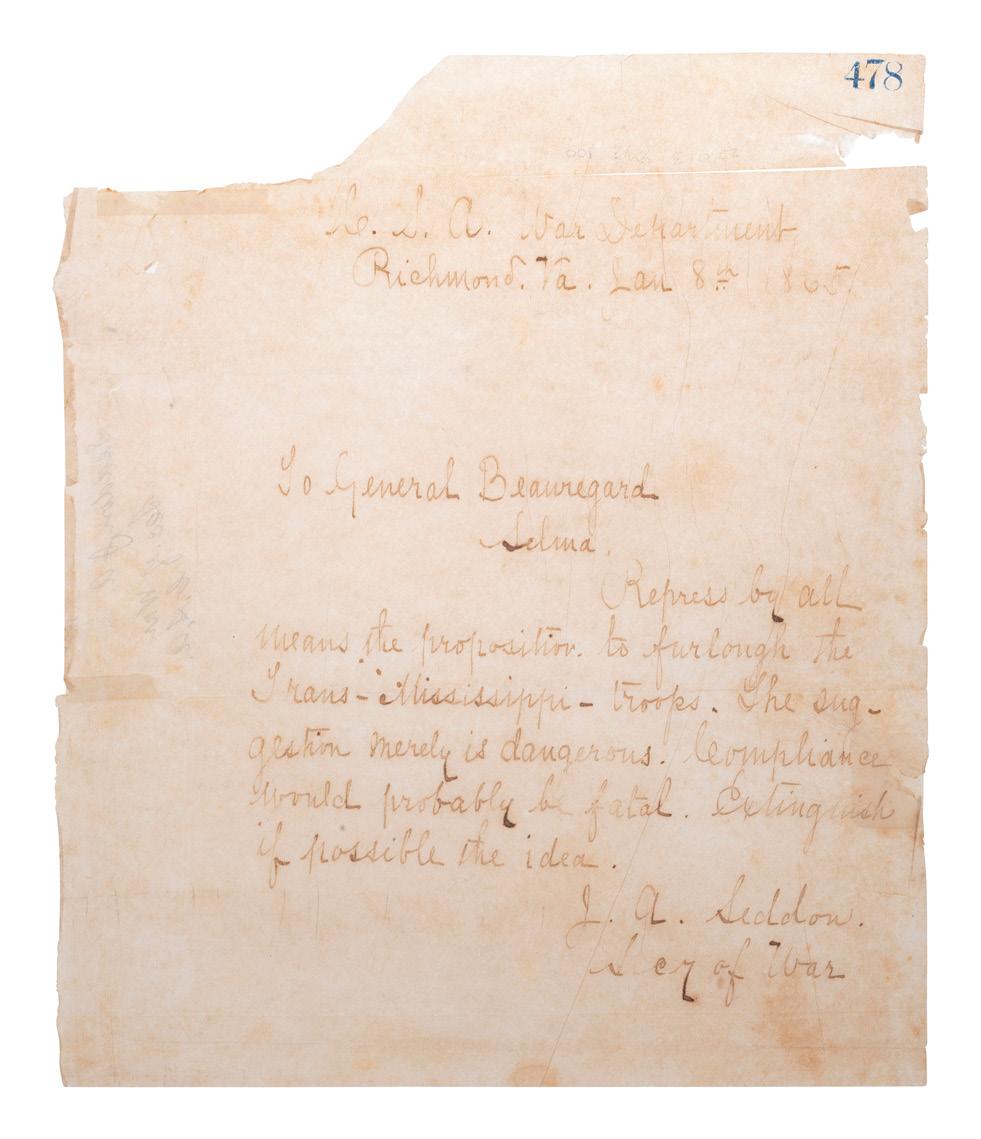 478
C. S. A. War Department
Richmond. Va. Jan 8th 1865
To General Beauregard
Selma.
Repress by all
means the proposition to furlough the
Trans-Mississippi-troops. The sug-
gestion merely is dangerous. Compliance
would probably be fatal. Extinguish
if possible the idea.
J. A. Seddon.
Secy of War